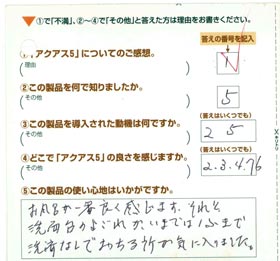 ▼①で「不満」、②~④で「その他」と答えた方は理由をお書きください。
答えの番号を記入
①「アクアス5」についてのご感想。
(理由
)
1
②この製品を何で知りましたか。
(その他
)
5
③この製品を導入された動機は何ですか。
(答えはいくつでも)
(その他
)
2 5
④どこで「アクアス5」の良さを感じますか。
(答えはいくつでも)
(その他
)
2.3.4.7
⑤この製品の使い心地はいかがですか。
お風呂が一番良く感じます。それと
洗面台のよごれが、いままでは
洗剤なしでおちる所が気に入りました。